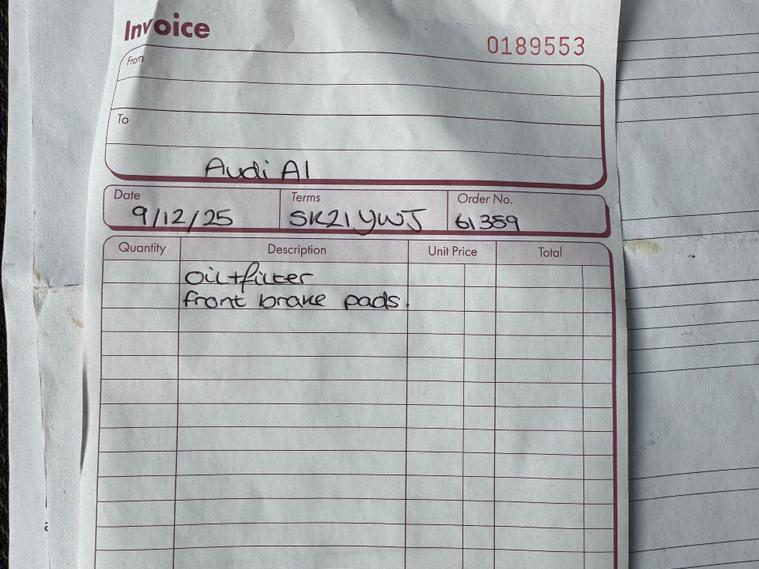 Invoice
0189553
From
To
Audi A1
Date
Terms
Order No.
9/12/25
SK21 YWJ
61359
Quantity
Description
Unit Price
Total
oil+filter
front brake pads.